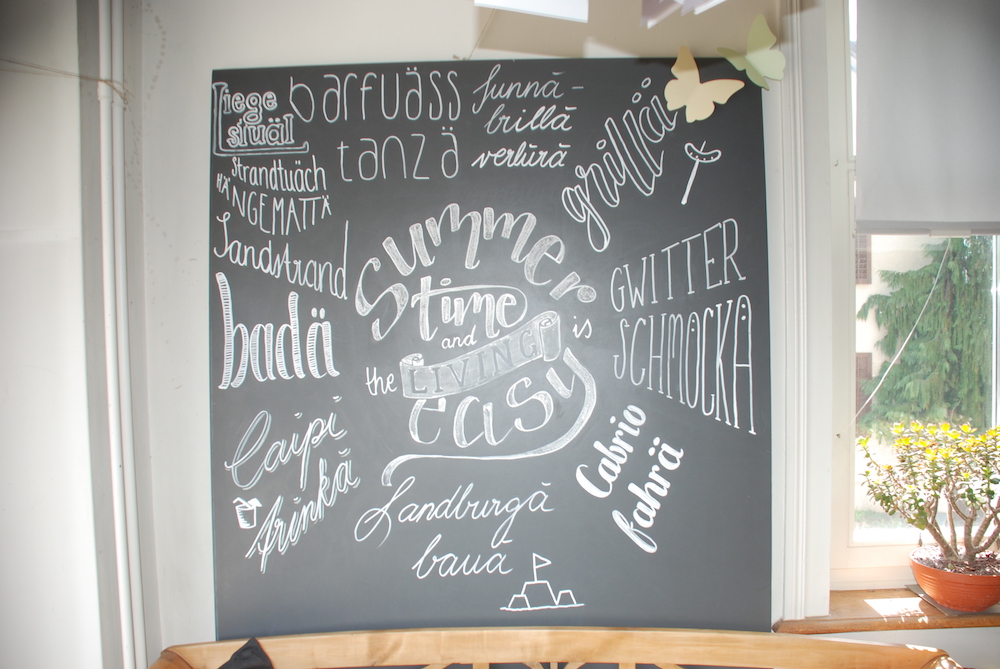 Liege
stuäl
barfuäss
tanzä
Sunnä-
brillä
verlürä
grilliä
Strandtuäch
HÄNGEMATTÄ
Sandstrand
badä
Summer
time
and
the LIVING is
easy
GWITTER
SCHMÖCKÄ
Caipi
trinkä
Cabrio
fahrä
Sandburgä
baua